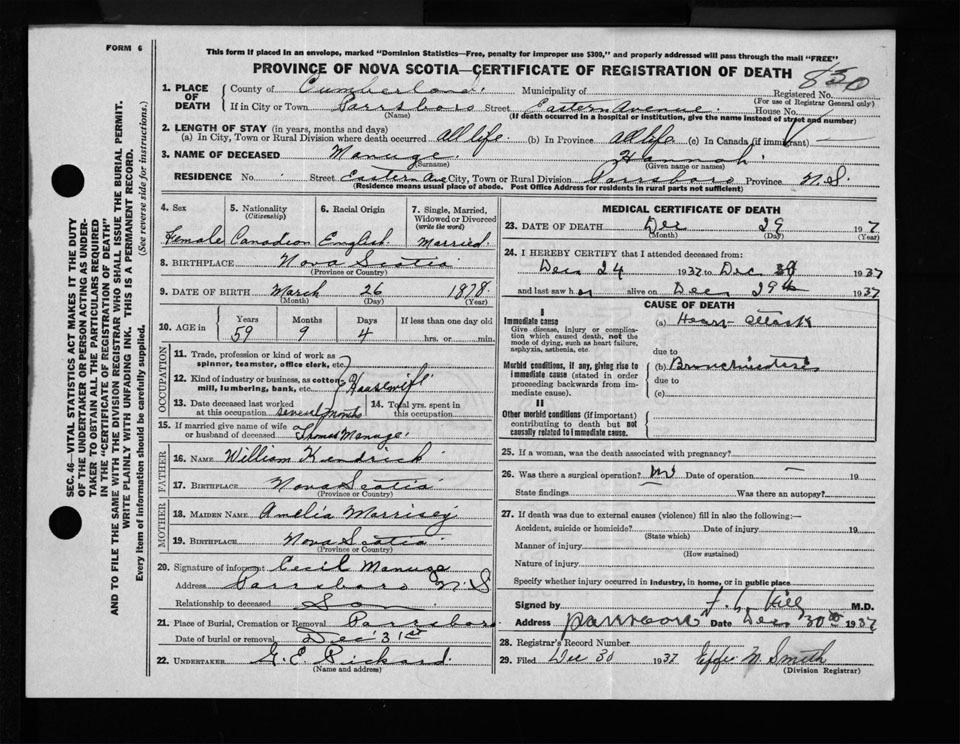 FORM 6
This form if placed in an envelope, marked "Dominion Statistics—Free, penalty for improper use $300," and properly addressed will pass through the mail "FREE"
PROVINCE OF NOVA SCOTIA—CERTIFICATE OF REGISTRATION OF DEATH
850
SEC. 46—VITAL STATISTICS ACT MAKES IT THE DUTY
OF THE UNDERTAKER OR PERSON ACTING AS UNDER-
TAKER TO OBTAIN ALL THE PARTICULARS REQUIRED
IN THE "CERTIFICATE OF REGISTRATION OF DEATH"
AND TO FILE THE SAME WITH THE DIVISION REGISTRAR WHO SHALL ISSUE THE BURIAL PERMIT.
WRITE PLAINLY WITH UNFADING INK. THIS IS A PERMANENT RECORD.
Every item of information should be carefully supplied. (See reverse side for instructions.)
1. PLACE OF DEATH
County of Cumberland. Municipality of Registered No.
(For use of Registrar General only)
If in City or Town Parrsboro Street Eastern Avenue. House No.
(Name) (If death occurred in a hospital or institution, give the name instead of street and number)
2. LENGTH OF STAY (in years, months and days)
(a) In City, Town or Rural Division where death occurred all life. (b) In Province all life (c) In Canada (if immigrant) —
3. NAME OF DECEASED Manuge. Hannah.
(Surname) (Given name or names)
RESIDENCE No. Street Eastern Ave City, Town or Rural Division Parrsboro Province N.S.
(Residence means usual place of abode. Post Office Address for residents in rural parts not sufficient)
4. Sex 5. Nationality (Citizenship) 6. Racial Origin 7. Single, Married, Widowed or Divorced (write the word)
Female Canadian English. Married.
8. BIRTHPLACE Nova Scotia
(Province or Country)
9. DATE OF BIRTH March 26 1878.
(Month) (Day) (Year)
10. AGE in Years Months Days If less than one day old
59 9 4 hrs. or min.
OCCUPATION
11. Trade, profession or kind of work as spinner, teamster, office clerk, etc.
12. Kind of industry or business, as cotton mill, lumbering, bank, etc. Housewife
13. Date deceased last worked at this occupation several months 14. Total yrs. spent in this occupation
15. If married give name of wife or husband of deceased Thomas Manuge.
FATHER
16. NAME William Kendrick
17. BIRTHPLACE Nova Scotia
(Province or Country)
MOTHER
18. MAIDEN NAME Amelia Morrisey
19. BIRTHPLACE Nova Scotia
(Province or Country)
20. Signature of informant Cecil Manuge
Address Parrsboro N.S
Relationship to deceased Son
21. Place of Burial, Cremation or Removal Parrsboro
Date of burial or removal Dec 31st
22. UNDERTAKER G. E. Rickard.
(Name and address)
MEDICAL CERTIFICATE OF DEATH
23. DATE OF DEATH Dec 29 1937
(Month) (Day) (Year)
24. I HEREBY CERTIFY that I attended deceased from:
Dec 24 1937 to Dec 1937
and last saw her alive on Dec 29th 1937
CAUSE OF DEATH
I
Immediate cause
Give disease, injury or complication which caused death, not the mode of dying, such as heart failure, asphyxia, asthenia, etc.
(a) Heart Attack
due to
Morbid conditions, if any, giving rise to immediate cause (stated in order proceeding backwards from immediate cause).
(b)
due to
(c)
II
Other morbid conditions (if important) contributing to death but not causally related to immediate cause.
25. If a woman, was the death associated with pregnancy?
26. Was there a surgical operation? No Date of operation — 19
State findings Was there an autopsy?
27. If death was due to external causes (violence) fill in also the following:—
Accident, suicide or homicide? Date of injury 19
(State which)
Manner of injury
(How sustained)
Nature of injury
Specify whether injury occurred in industry, in home, or in public place
Signed by Hill M.D.
Address Date Dec 30th 1937
28. Registrar's Record Number
29. Filed Dec 30 1937 Effie M. Smith
(Division Registrar)